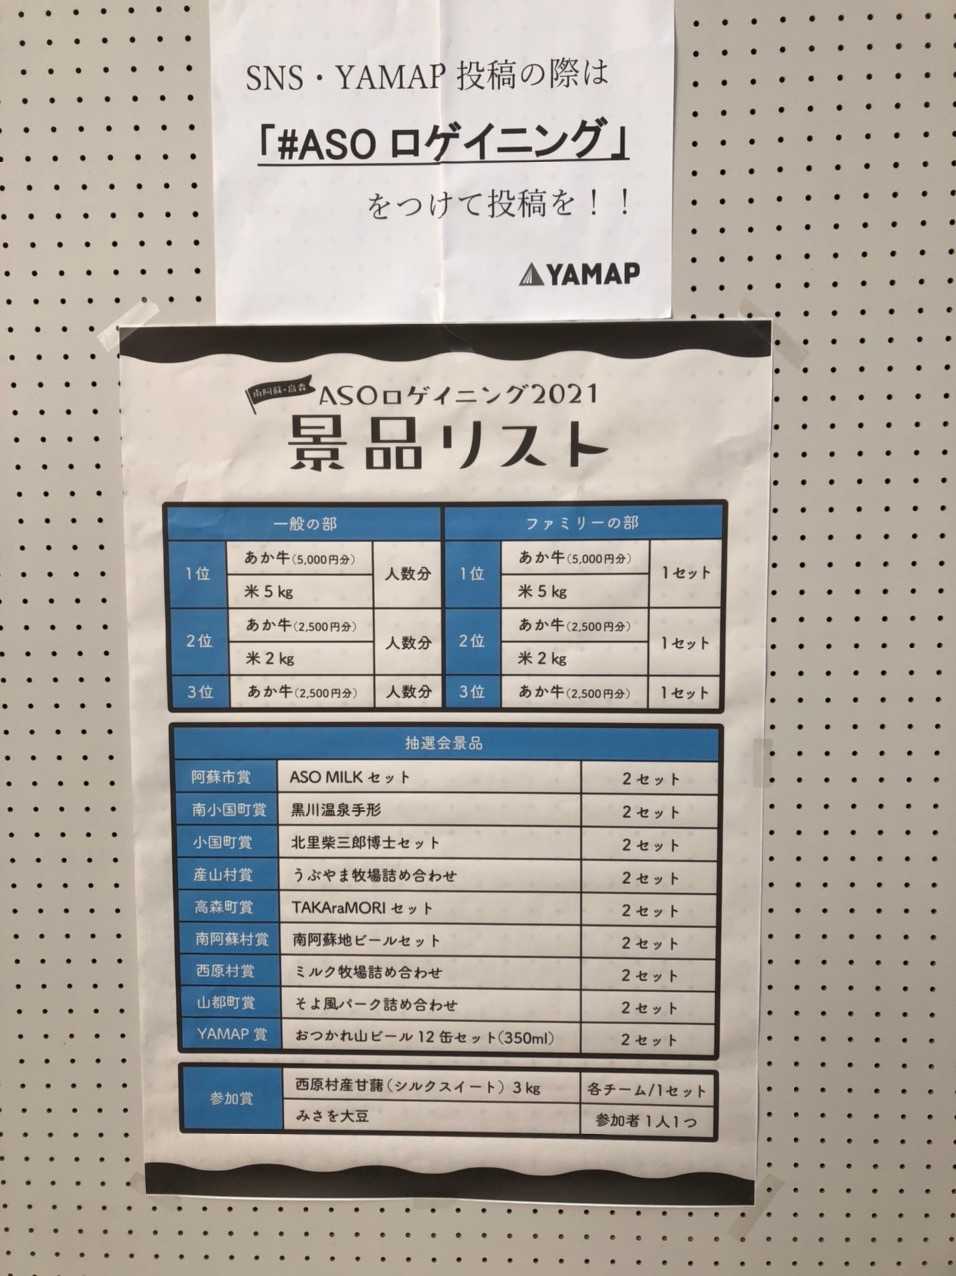 SNS・YAMAP 投稿の際は
「#ASO ロゲイニング」
をつけて投稿を！！
YAMAP
南阿蘇・高森
ASOロゲイニング2021
景品リスト
一般の部 ファミリーの部
1位 あか牛(5,000円分) 米5kg 人数分 1位 あか牛(5,000円分) 米5kg 1セット
2位 あか牛(2,500円分) 米2kg 人数分 2位 あか牛(2,500円分) 米2kg 1セット
3位 あか牛(2,500円分) 人数分 3位 あか牛(2,500円分) 1セット
抽選会景品
阿蘇市賞 ASO MILK セット 2セット
南小国町賞 黒川温泉手形 2セット
小国町賞 北里柴三郎博士セット 2セット
産山村賞 うぶやま牧場詰め合わせ 2セット
高森町賞 TAKAraMORI セット 2セット
南阿蘇村賞 南阿蘇地ビールセット 2セット
西原村賞 ミルク牧場詰め合わせ 2セット
山都町賞 そよ風パーク詰め合わせ 2セット
YAMAP 賞 おつかれ山ビール 12 缶セット(350ml) 2セット
参加賞 西原村産甘藷(シルクスイート)3kg 各チーム/1セット
みさを大豆 参加者1人1つ